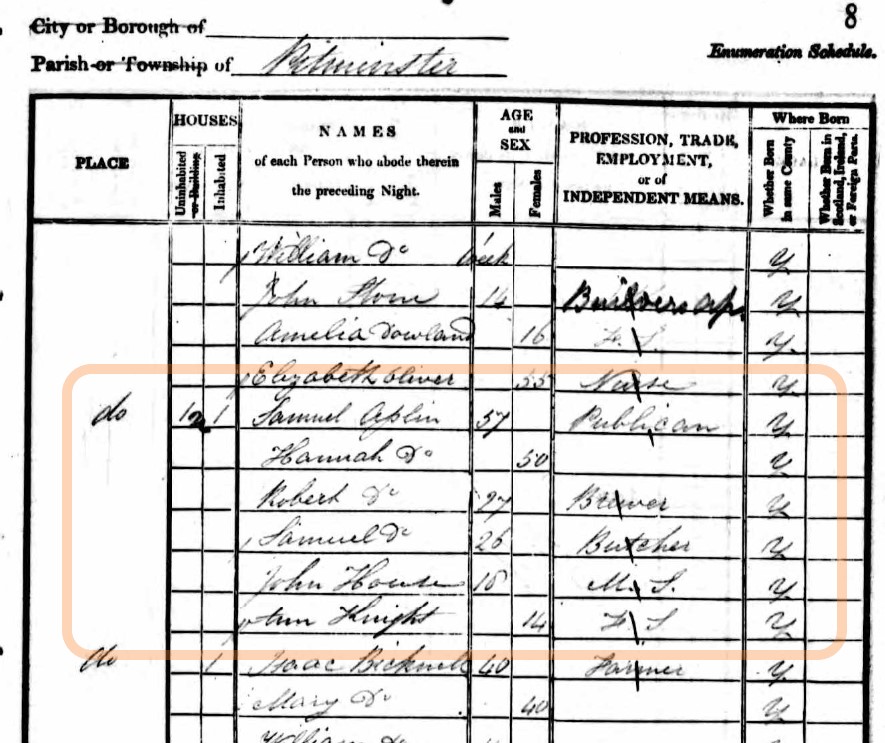 8
City or Borough of
Parish or Township of Pitminster
Enumeration Schedule.
PLACE
HOUSES
Uninhabited or Building
Inhabited
NAMES
of each Person who abode therein
the preceding Night.
AGE
and
SEX
Males
Females
PROFESSION, TRADE,
EMPLOYMENT,
or of
INDEPENDENT MEANS.
Where Born
Whether Born in same County
Whether Born in Scotland, Ireland, or Foreign Parts.
William Do week y
John 14 Builders ap y
Amelia Dowland 16 F. S. y
Elizabeth Oliver 55 Nurse y
do 1 Samuel Aplin 57 Publican y
Hannah Do 50 y
Robert Do 27 Brewer y
Samuel Do 26 Butcher y
John House M. S. y
Ann Knight 14 F. S y
do 1 Isaac Bicknell 40 Farmer y
Mary Do 40 y
William Do